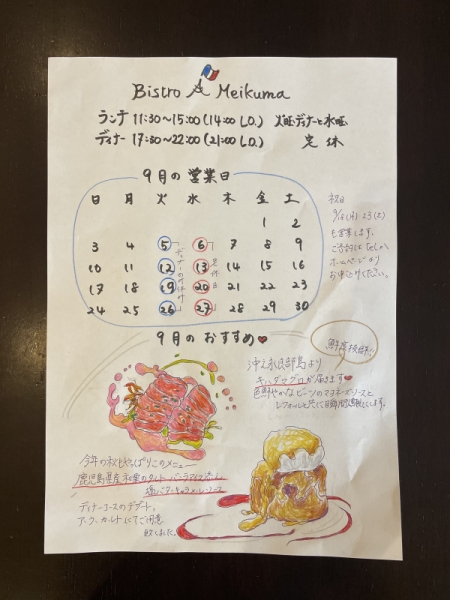 Bistro Meikuma
ランチ 11:30〜15:00(14:00 L.O.) 火曜ディナーと水曜
ディナー 17:30〜22:00(21:00 L.O.) 定休
9月の営業日
日 月 火 水 木 金 土
1 2
3 4 5 6 7 8 9
10 11 12 13 14 15 16
17 18 19 20 21 22 23
24 25 26 27 28 29 30
ディナーのみ休
定休日
祝日
9/18(月) 23(土)
も営業します。
ご予約は Telか
ホームページより
お申し付けください。
9月のおすすめ
沖永良部島より
キハダマグロが届きます
色鮮やかなビーツのマヨネーズソースと
今年の秋もやっぱりこのメニュー
鹿児島県産 和栗のタルト バニラアイス添え
塩バターキャラメルソース
ディナーコースのデザート、
アラカルトにてご用意
致しました。